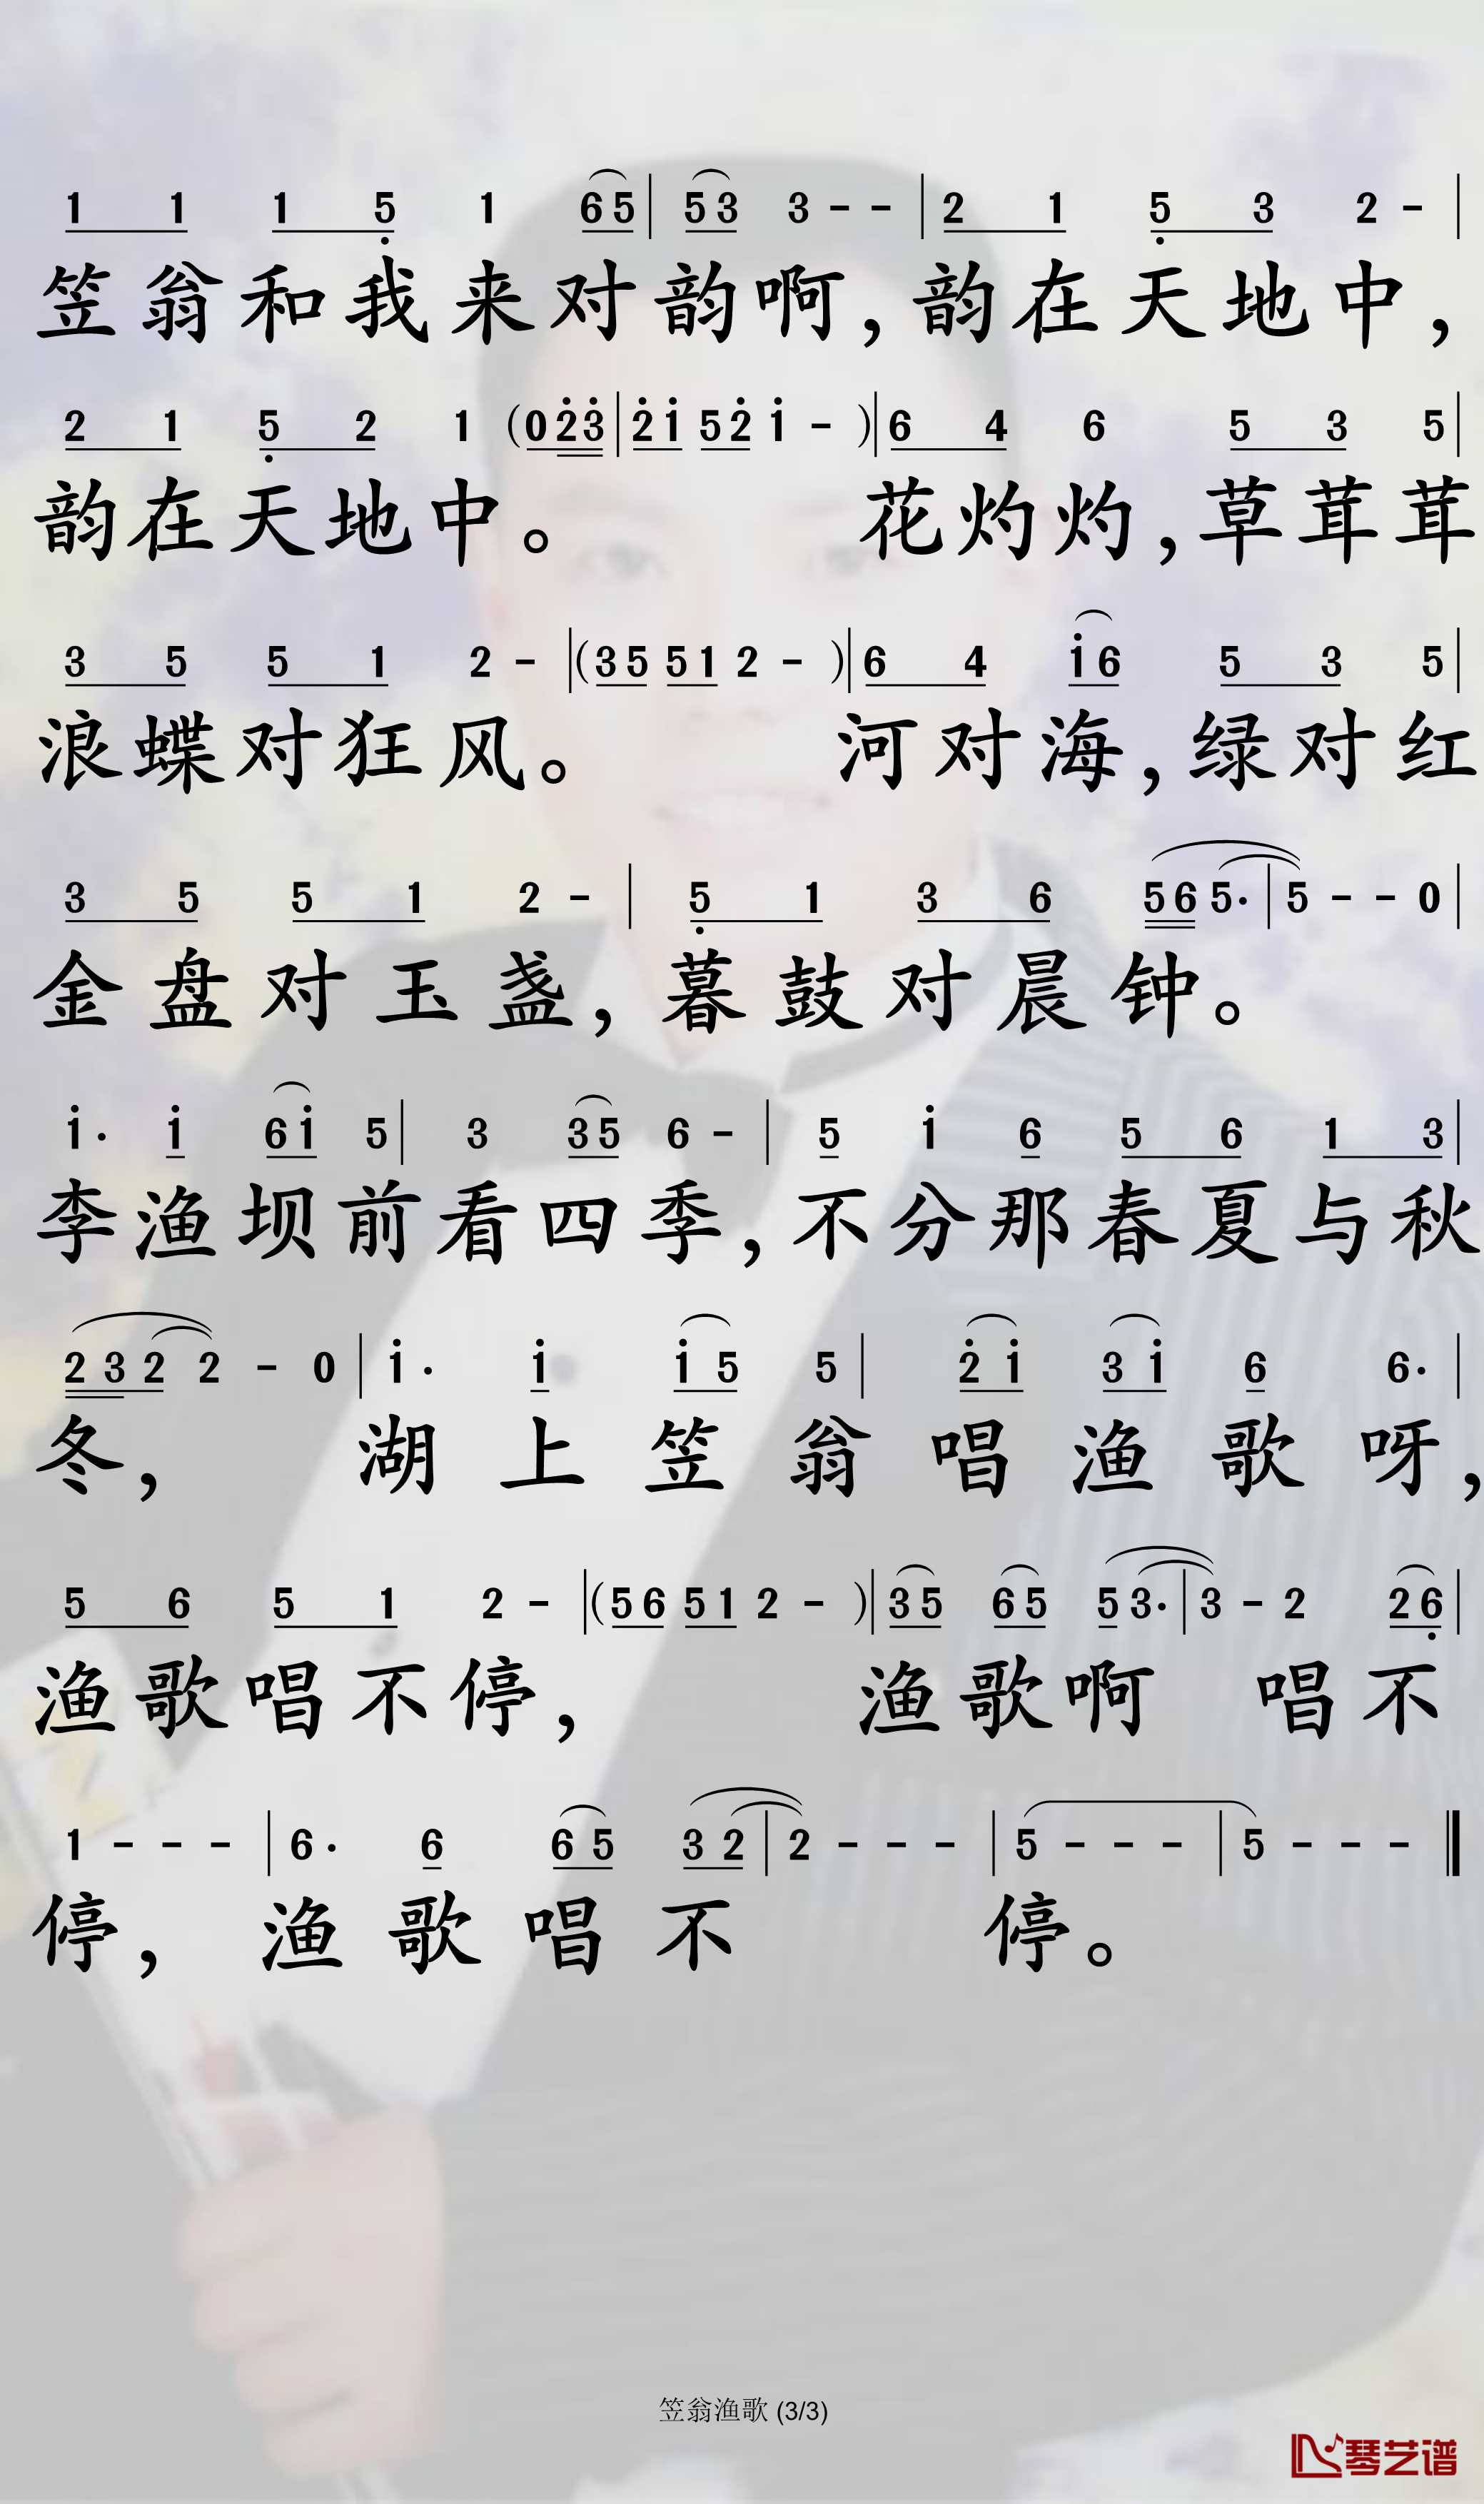 1 1 1 5 1 65 | 53 3 - - | 2 1 5 3 2 - |
笠翁和我来对韵啊,韵在天地中,
2 1 5 2 1 (023 | 21 52 1 - ) | 6 4 6 5 3 5 |
韵在天地中。 花灼灼,草茸茸
3 5 5 1 2 - | (35 51 2 - ) | 6 4 16 5 3 5 |
浪蝶对狂风。 河对海,绿对红
3 5 5 1 2 - | 5 1 3 6 56 5· | 5 - - 0 |
金盘对玉盏,暮鼓对晨钟。
1· 1 61 5 | 3 35 6 - | 5 1 6 5 6 1 3 |
李渔坝前看四季,不分那春夏与秋
2 3 2 2 - 0 | 1· 1 1 5 5 | 2 1 3 1 6 6· |
冬, 湖上笠翁唱渔歌呀,
5 6 5 1 2 - | (56 51 2 - ) | 35 65 5 3· | 3 - 2 26 |
渔歌唱不停, 渔歌啊 唱不
1 - - - | 6· 6 6 5 3 2 | 2 - - - | 5 - - - | 5 - - - ‖
停, 渔歌唱不 停。
笠翁渔歌 (3/3)
琴艺谱